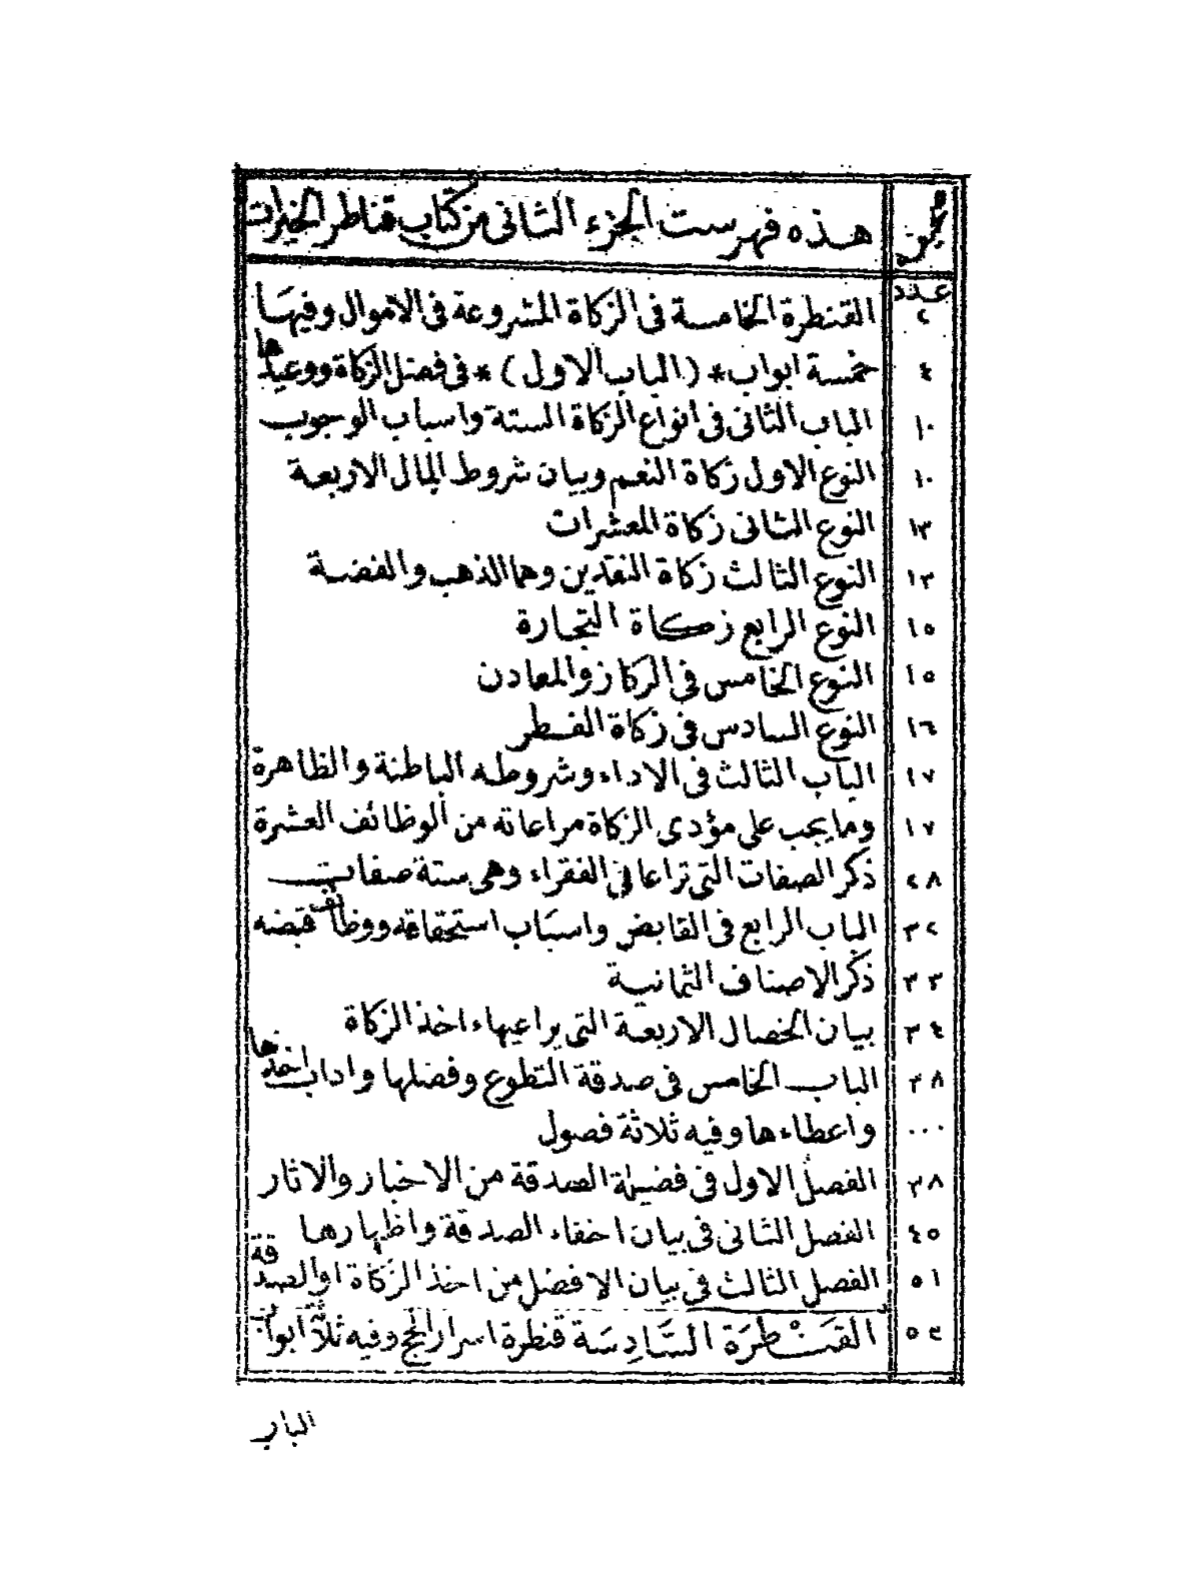 هذه فهرست الجزء الثانى من كتاب قناطر الخيرات
عدد
٢ القنطرة الخامسة فى الزكاة المشروعة فى الاموال وفيها
٤ خمسة ابواب * (الباب الاول) * فى فضل الزكاة ووعيدها
١٠ الباب الثانى فى انواع الزكاة الستة واسباب الوجوب
١٠ النوع الاول زكاة النعم وبيان شروط المال الاربعة
١٣ النوع الثانى زكاة المعشرات
١٣ النوع الثالث زكاة النقدين وهما الذهب والفضة
١٥ النوع الرابع زكاة التجارة
١٥ النوع الخامس فى الركاز والمعادن
١٦ النوع السادس فى زكاة الفطر
١٧ الباب الثالث فى الاداء وشروطه الباطنة والظاهرة
١٧ وما يجب على مؤدى الزكاة مراعاته من الوظائف العشرة
٢٨ ذكر الصفات التى تراعا فى الفقراء وهى ستة صفات
٣٢ الباب الرابع فى القابض واسباب استحقاقه ووظائف قبضه
٣٣ ذكر الاصناف الثمانية
٣٤ بيان الخصال الاربعة التى يراعيها ءاخذ الزكاة
٣٨ الباب الخامس فى صدقة التطوع وفضلها واداب اخذها
٠٠٠ واعطاءها وفيه ثلاثة فصول
٣٨ الفصل الاول فى فضيلة الصدقة من الاخبار والاثار
٤٥ الفصل الثانى فى بيان اخفاء الصدقة واظهارها
٥١ الفصل الثالث فى بيان الافضل من اخذ الزكاة اوالصدقة
٥٤ القنْطرَة السَّادِسَة قنطرة اسرار الحج وفيه ثلاثة ابواب
الباب